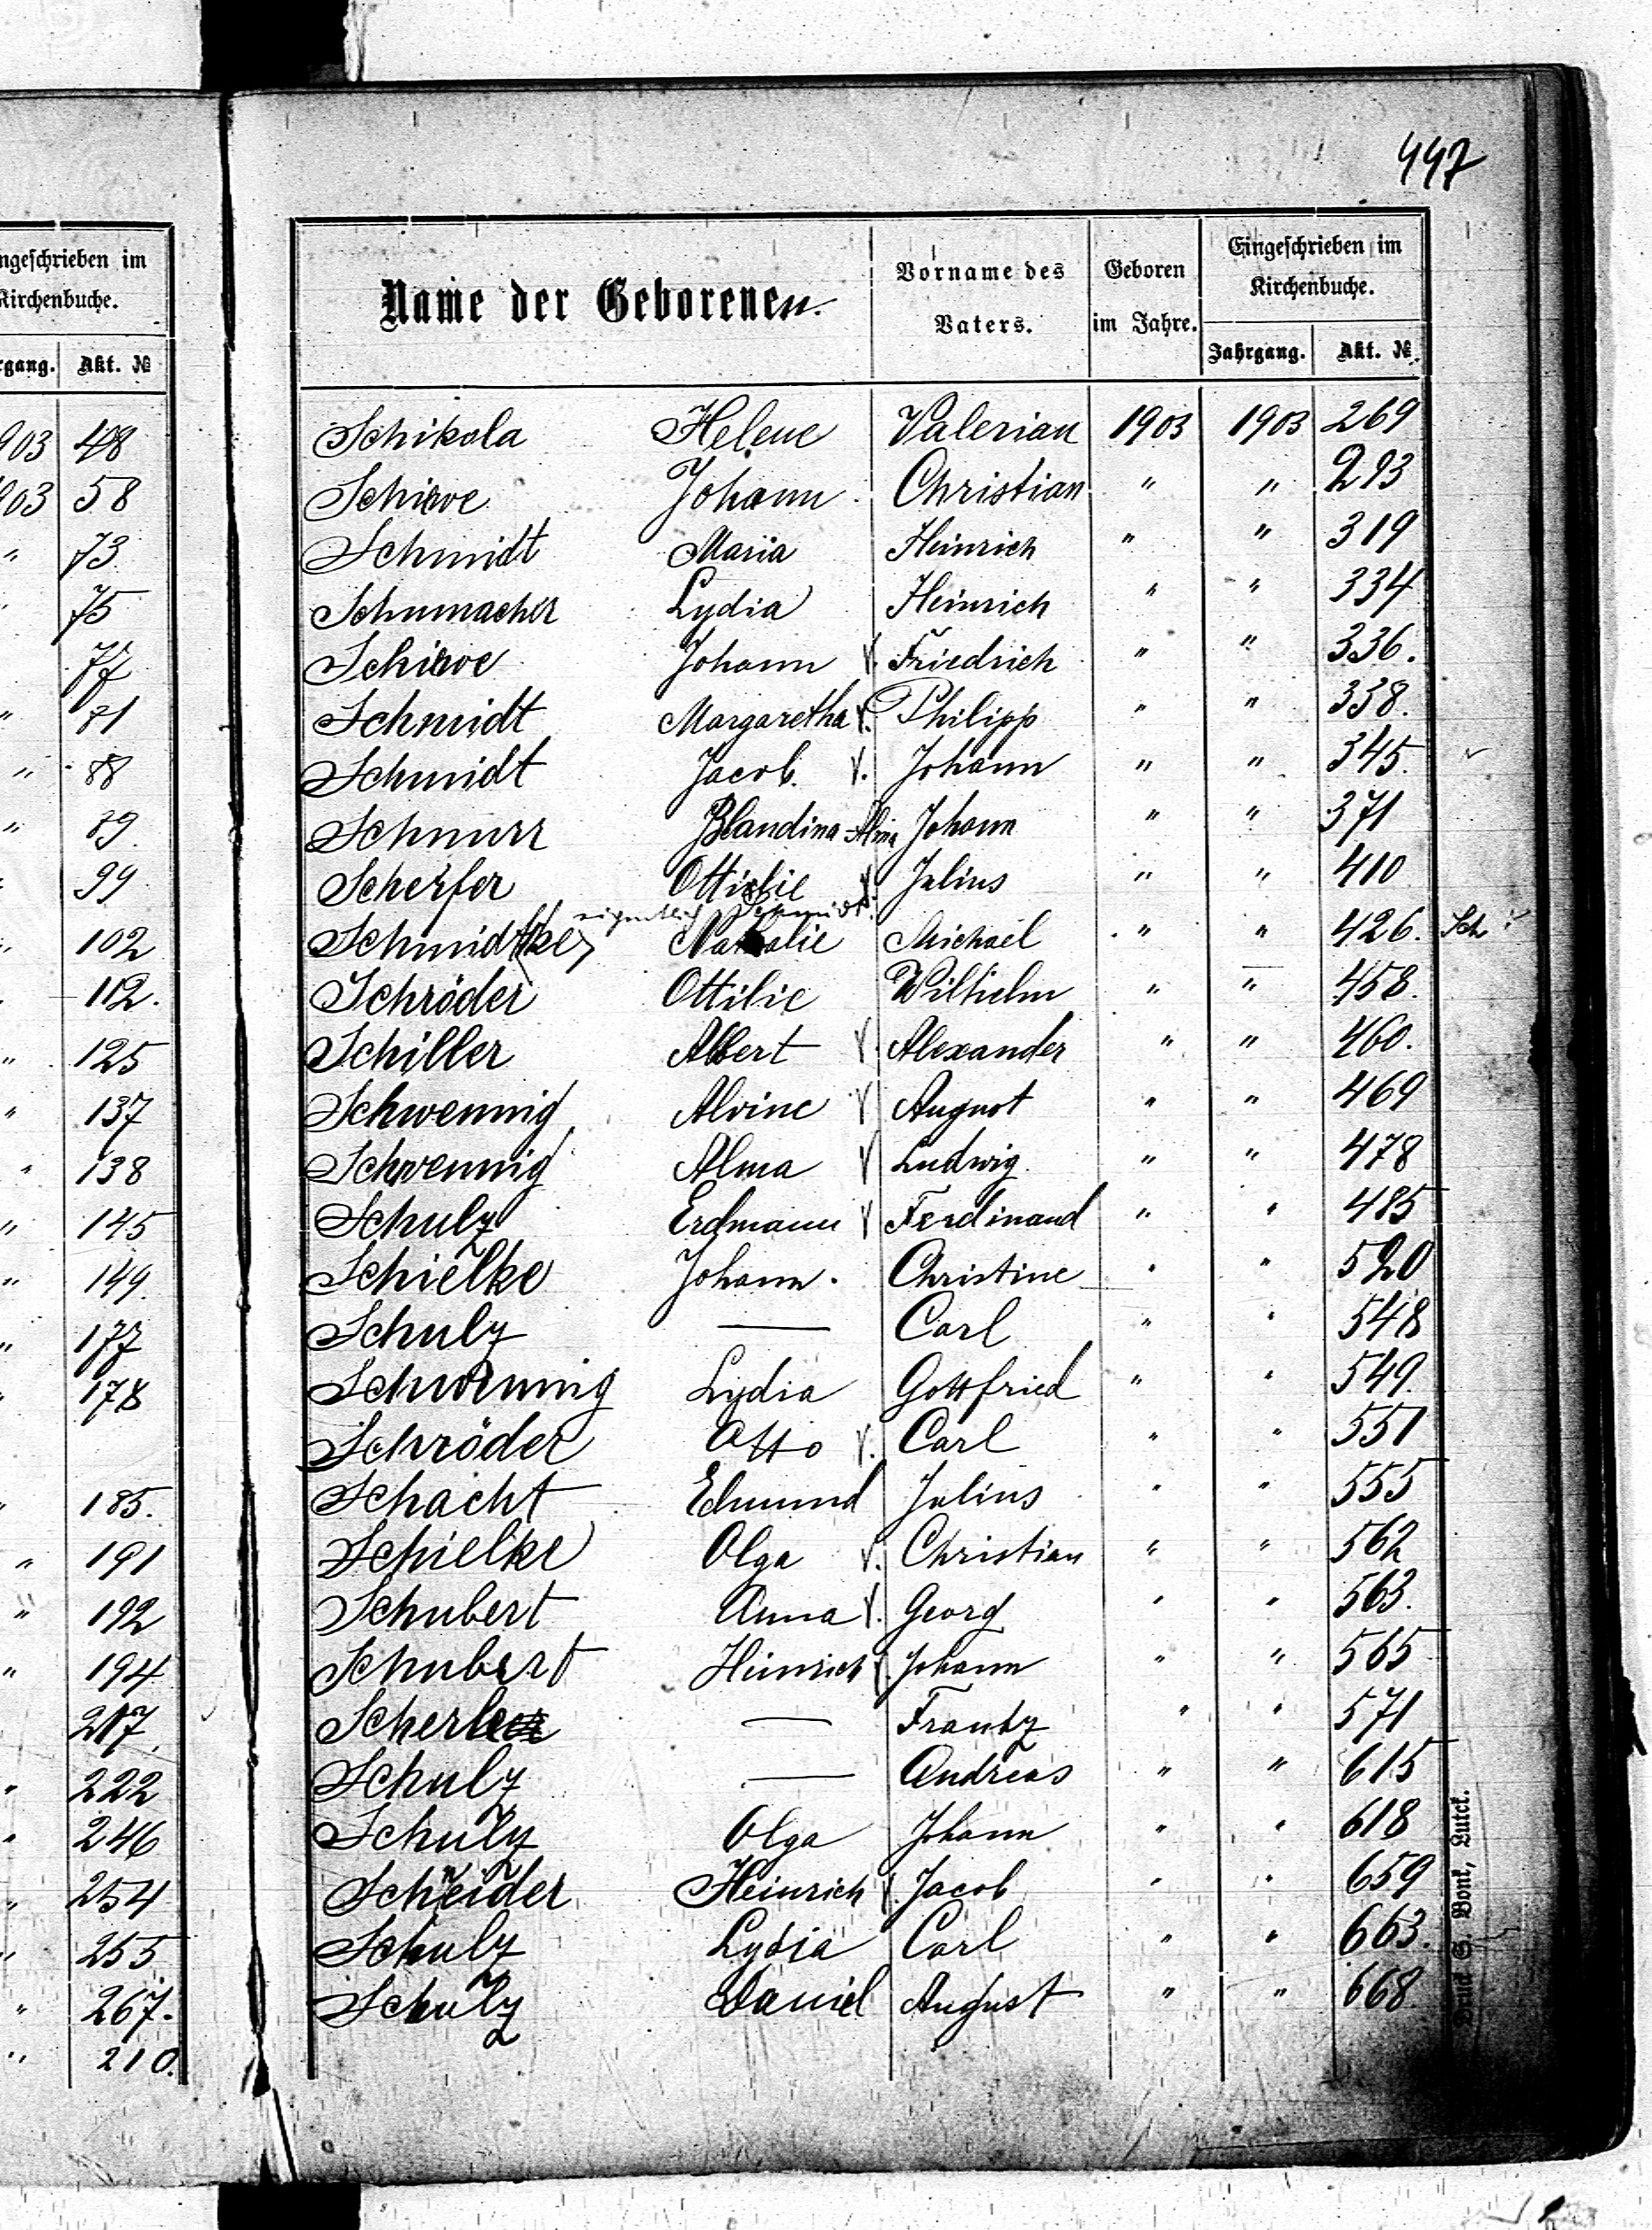 447
ngeschrieben im
Kirchenbuche.
rgang. Akt. №
903 48
903 58
" 73
" 75
77
" 81
" 88
" 89.
99
" 102
112.
" 125
" 137
" 138
" 145
" 149.
" 177
" 178
" 185.
" 191
" 192
" 194
217.
" 222
" 246
" 254
" 255
" 267.
" 210.
Name der Geborenen. Vorname des Vaters. Geboren im Jahre. Eingeschrieben im Kirchenbuche.
Jahrgang. Akt. №
Schikola Helene Valerian 1903 1903 269
Schirve Johann Christian " " 293
Schmidt Maria Heinrich " " 319
Schumacher Lydia Heinrich " " 334
Schirve Johann V. Friedrich " " 336.
Schmidt Margaretha V. Philipp " " 338.
Schmidt Jacob. V. Johann " " 345.
Schnurr Blandina Alma Johann " " 371
Scherfer Ottilie V Julius " " 410
eigentlich Schmidt.
Schmidtke Nathalie Michael " " 426. Sch
Schröder Ottilie Wilhelm " " 458.
Schiller Albert V. Alexander " " 460.
Schwennig Alvine V August " " 469
Schwennig Alma V Ludwig " " 478
Schulz Erdmann V Ferdinand " " 485
Schielke Johann. Christine " " 520
Schulz — Carl " " 548
Schwennig Lydia Gottfried " " 549.
Schröder Otto V. Carl " " 551
Schacht Edmund Julius " " 555
Schielke Olga V. Christian " " 562
Schubert Anna V. Georg " " 563.
Schubert Heinrich V. Johann " " 565
Scherle — Frantz " " 571
Schulz — Andreas " " 615
Schulz Olga Johann " " 618
Schneider Heinrich V. Jacob " " 659
Schulz Lydia Carl " " 663.
Schulz Daniel August " " 668.
Druck S. Bonk, Lutck.